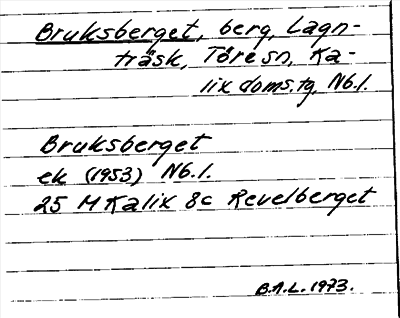 Bruksberget, berg, Lagn-
träsk, Töre sn, Ka-
lix doms.tg, Nb.l.
Bruksberget
ek (1953) Nb.l.
25 M Kalix 8c Revelberget
B.A.L. 1973.